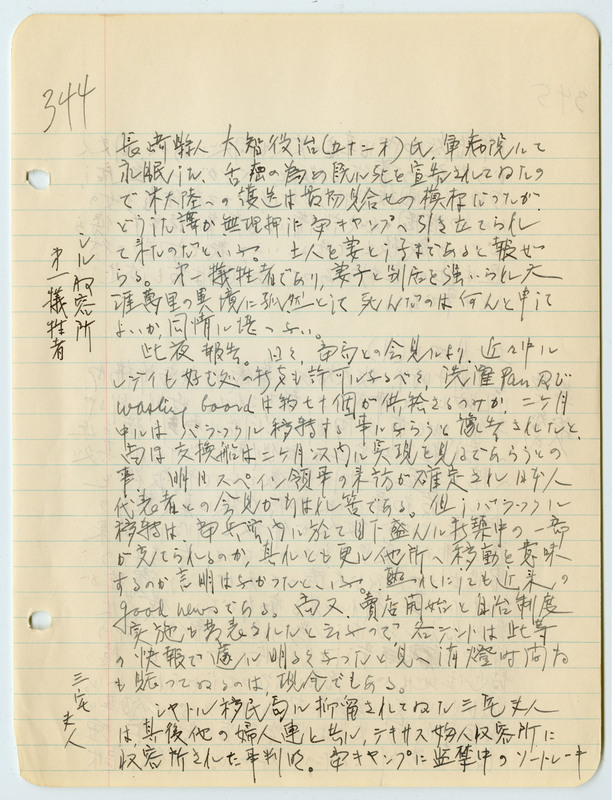 344
長崎縣人 大智役治(五十二才)氏、軍病院にて
永眠した、舌癌の為め既に死を宣告されてゐたの
で米大陸への護送は最初見合せの模様だったが
どうした譯か無理押に当キャンプへ引き立てられ
て来たのだといふ。土人を妻とし子まであると報ぜ
らる。第一犠牲者であり、妻子と別居を強いられ天
涯萬里の異境に孤然として死んだのは何んと申して
よいか、同情に堪へない。
シル収容所
第一犠牲者
此夜報告。曰く、当局との会見により、近々中に
レディも好む処の も許可になるべく、洗濯 Pan 及び
washing board は約七十個が供給さるのみか、二ヶ月
中にはバラックに移轉する事にならうと豫告されたと、
尚ほ交換船は二ヶ月以内に実現を見るであらうとの
事 明日スペイン領事の来訪が確定され日本人
代表者との会見が行はれる筈である。但しバラックに
移轉は、当兵営内に於て目下盛んに新築中の一部
が充てられるのか、其れとも更に他所へ移動を意味
するのか言明はなかったといふ。孰れにしても近来の
good newsである。尚又、賣店開始と自治制度
実施も発表されたと云ふので、各テントは此等
の快報で遽に明るくなったと見へ消燈時間を
も賑ってゐるのは現金でもある。
三宅夫人
シャトル移民局に抑留されてゐた三宅夫人
は、其後他の婦人連と共に、テキサス婦人収容所に
収容所された事判明。当キャンプに監禁中のソートレーキ